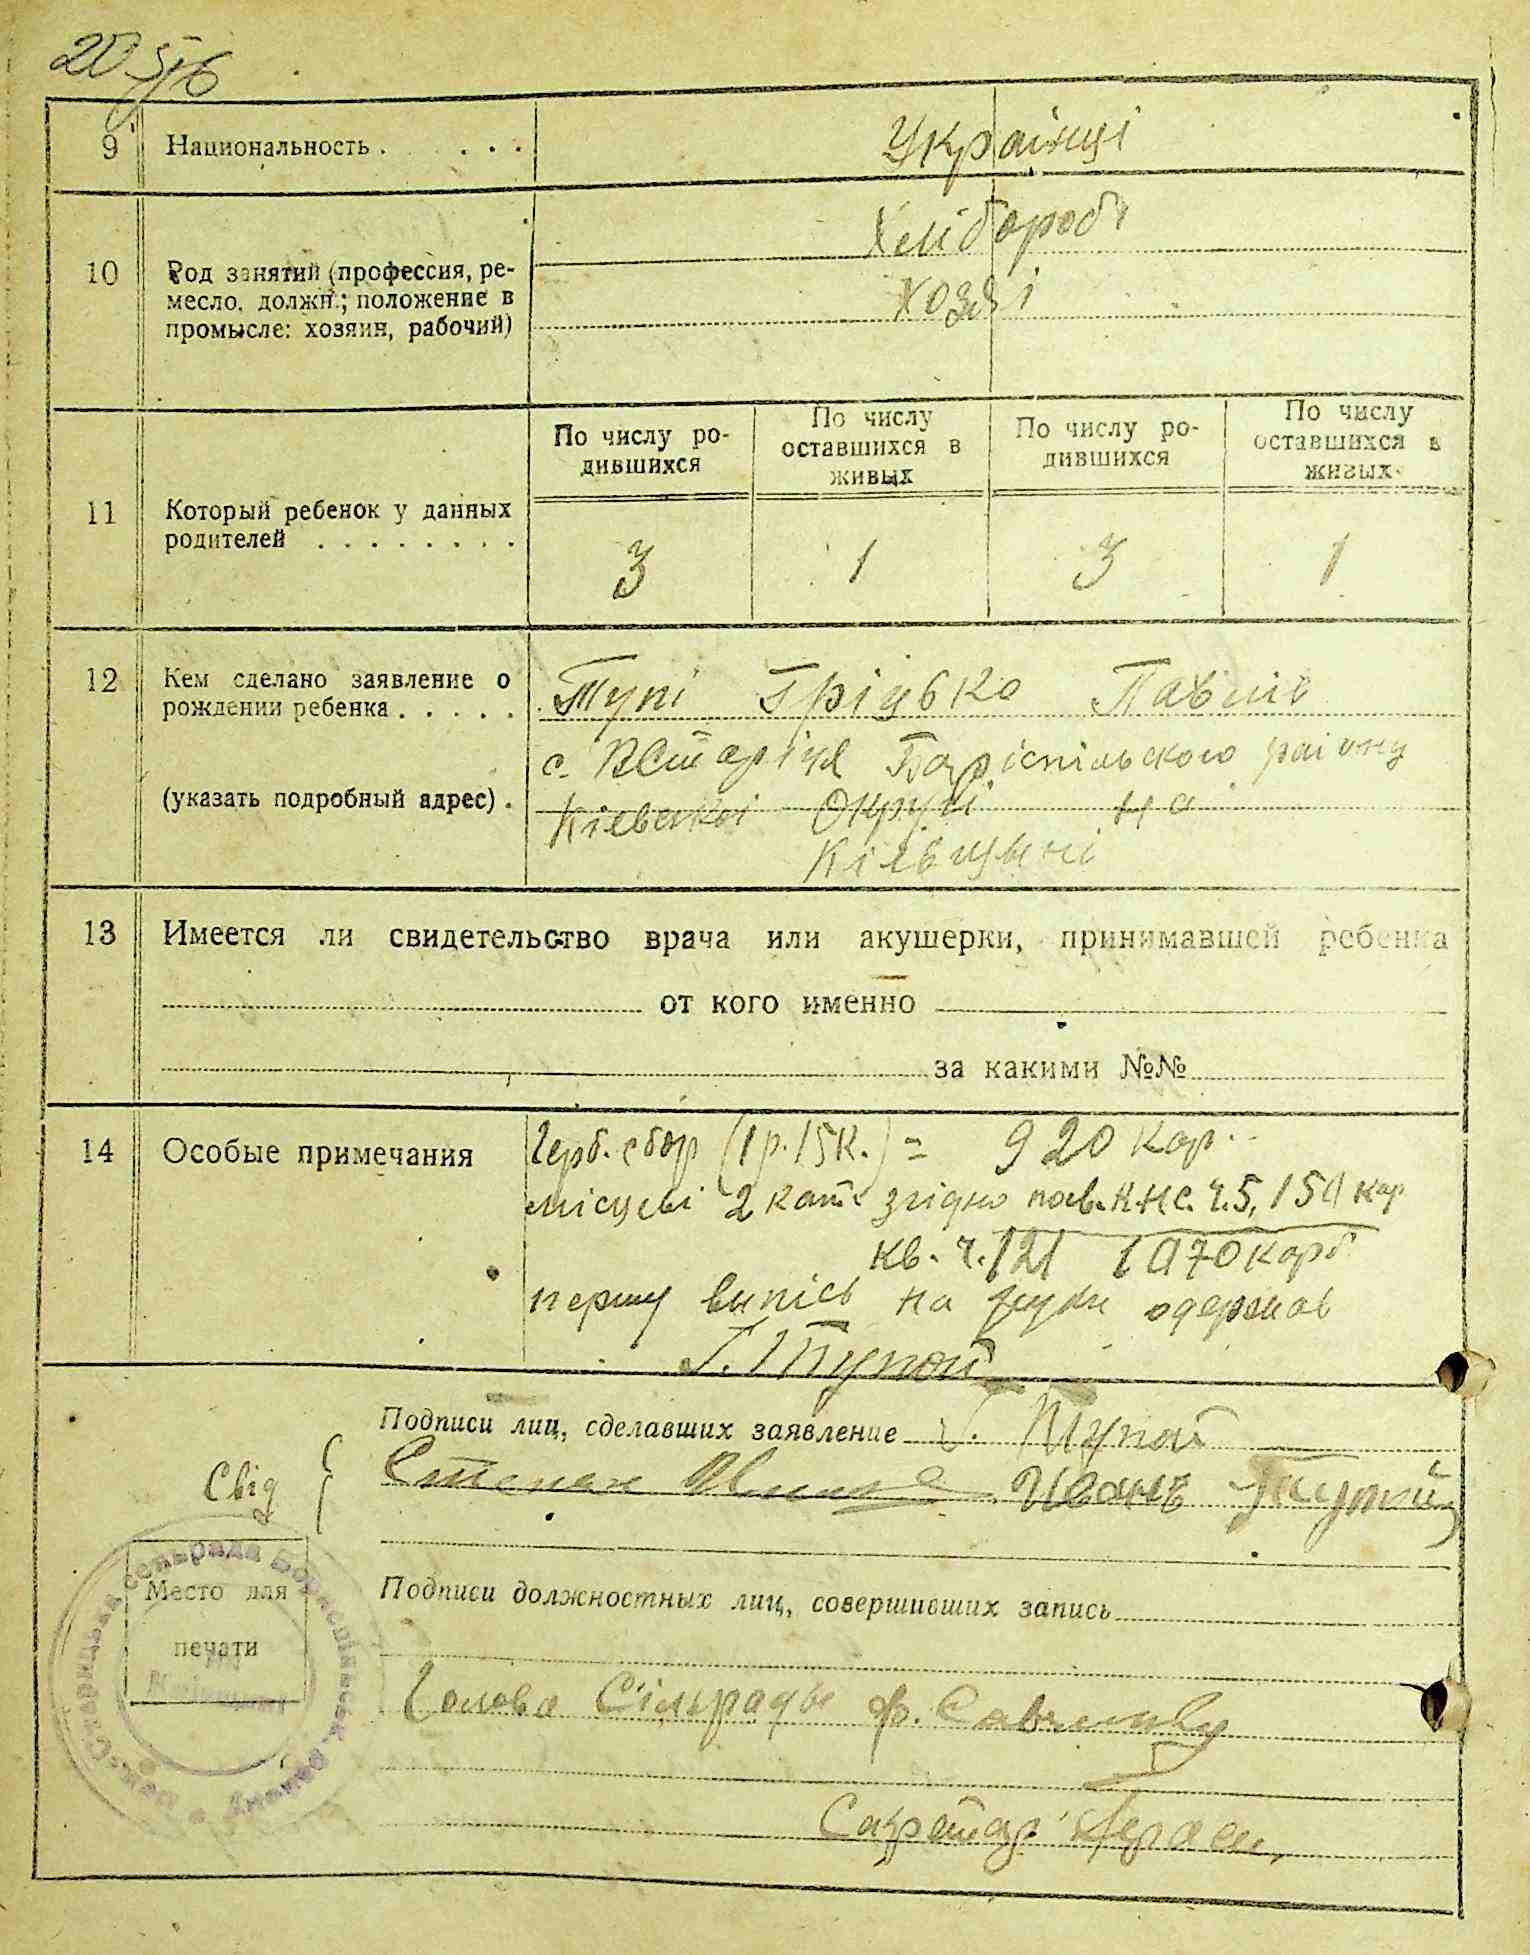 9 Национальность . . . . . Українці
10 Род занятий (профессия, ре-
месло, должн.; положение в
промысле: хозяин, рабочий)
Хліборобі
хозяї
11 Который ребенок у данных
родителей . . . . . . . .
По числу ро-
дившихся
По числу
оставшихся в
живых
По числу ро-
дившихся
По числу
оставшихся в
живых
3 1 3 1
12 Кем сделано заявление о
рождении ребенка . . . . .
(указать подробный адрес) .
Тупі Гріцько Павлів
с. Баріспільського раіону
Кіевскоі Округі на
Кіівщині
13 Имеется ли свидетельство врача или акушерки, принимавшей ребенка
от кого именно
за какими №№
14 Особые примечания
Герб. сбор (1 р. 15 к.) = 920 кар.
місцеві 2 кат. згідно 150 кар
кв. ч. 121 1070 карб
першу випісь на руки одержав
Г. Тупой
Подписи лиц, сделавших заявление Г. Тупой
Свід { Степан Иванъ Тупой
Место для
печати
Подписи должностных лиц, совершивших запись
Голова Сільради Ф.
Сакретар